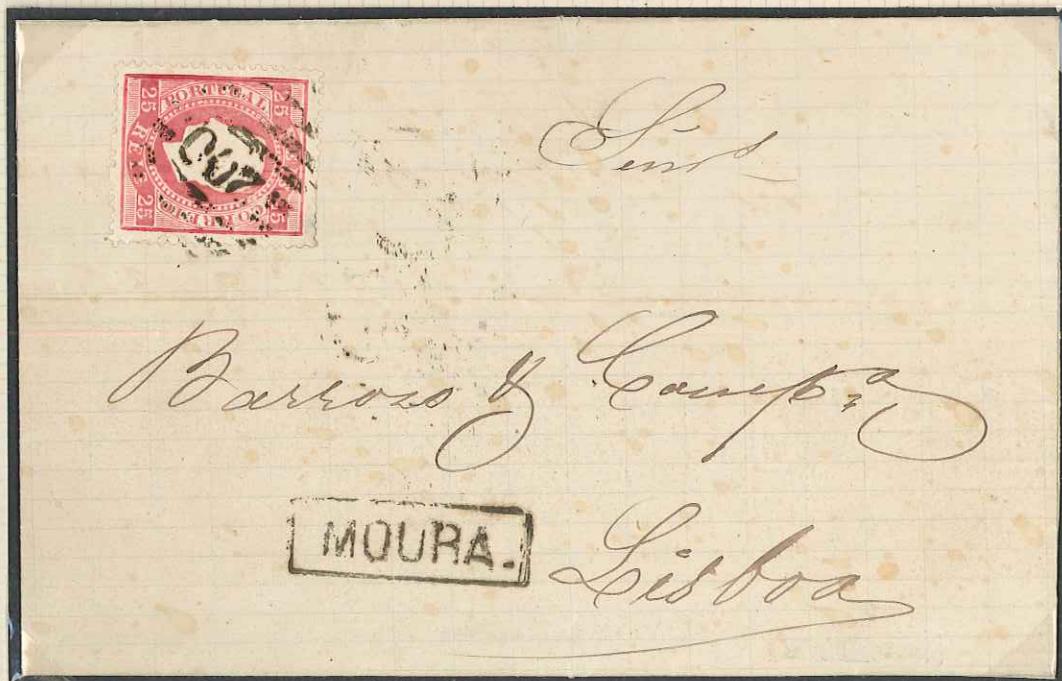 PORTUGAL
25 REIS 25
25 25
CORREIO
Snrs
Barrozo & Compª
MOURA.
Lisboa